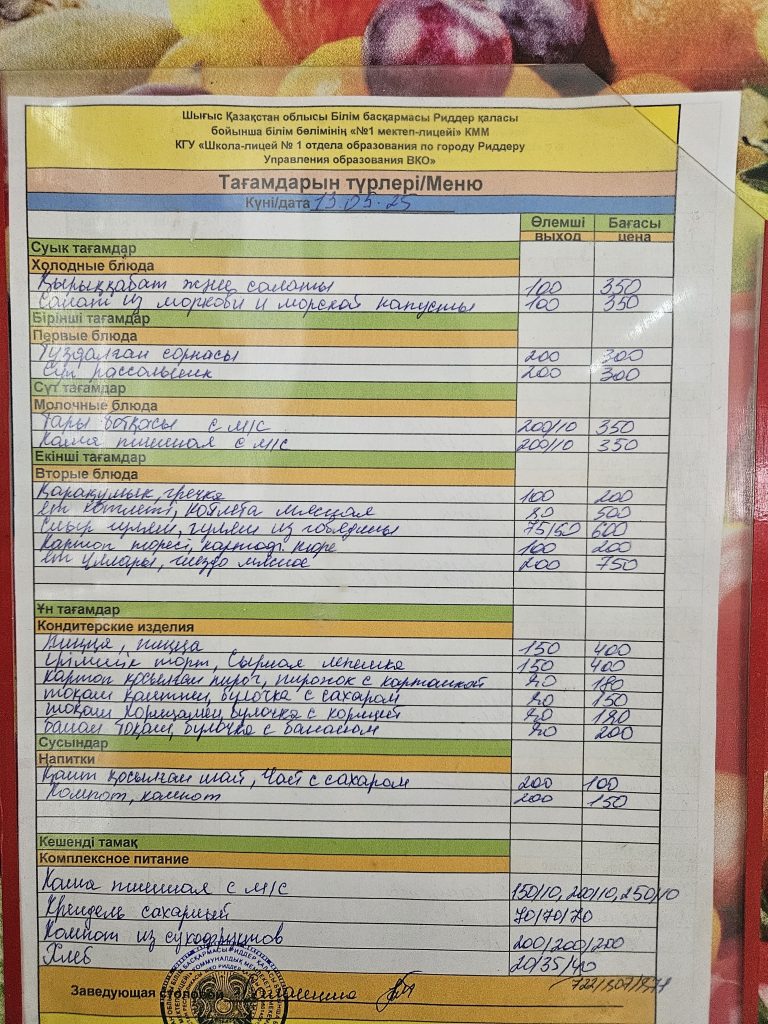 Шығыс Қазақстан облысы Білім басқармасы Риддер қаласы
бойынша білім бөлімінің «№1 мектеп-лицейі» КММ
КГУ «Школа-лицей № 1 отдела образования по городу Риддеру
Управления образования ВКО»
Тағамдарын түрлері/Меню
Күні/дата 13.05.25
Өлемші Бағасы
выход цена
Суык тағамдар
Холодные блюда
Қырыққабат және салаты 100 350
Салат из моркови и морской капусты 100 350
Бірінші тағамдар
Первые блюда
Тұздалған сорпасы 200 300
Суп рассольник 200 300
Сүт тағамдар
Молочные блюда
Тары ботқасы с м/с 200/10 350
Каша пшенная с м/с 200/10 350
Екінші тағамдар
Вторые блюда
Қарақұмық, гречка 100 200
Ет котлеті, котлета мясная 80 500
Сиыр гуляш, гуляш из говядины 75/50 600
Картоп пюресі, картоф. пюре 100 200
Ет ұялары, гнездо мясное 200 750
Ұн тағамдар
Кондитерские изделия
Пицца, пицца 150 400
Ірімшік торт, Сырная лепешка 150 400
Картоп қосылған пирог, пирожок с картошкой 180
тоқаш қантпен, булочка с сахаром 150
тоқаш корицамен, булочка с корицей 180
банан тоқаш, булочка с бананом 200
Сусындар
Напитки
Қант қосылған шай, Чай с сахаром 200 100
Компот, компот 200 150
Кешенді тамақ
Комплексное питание
Каша пшенная с м/с 150/10, 200/10, 250/10
Крендель сахарный 70/70/70
Компот из сухофруктов 200/200/200
Хлеб 20/35/40
Заведующая столовой